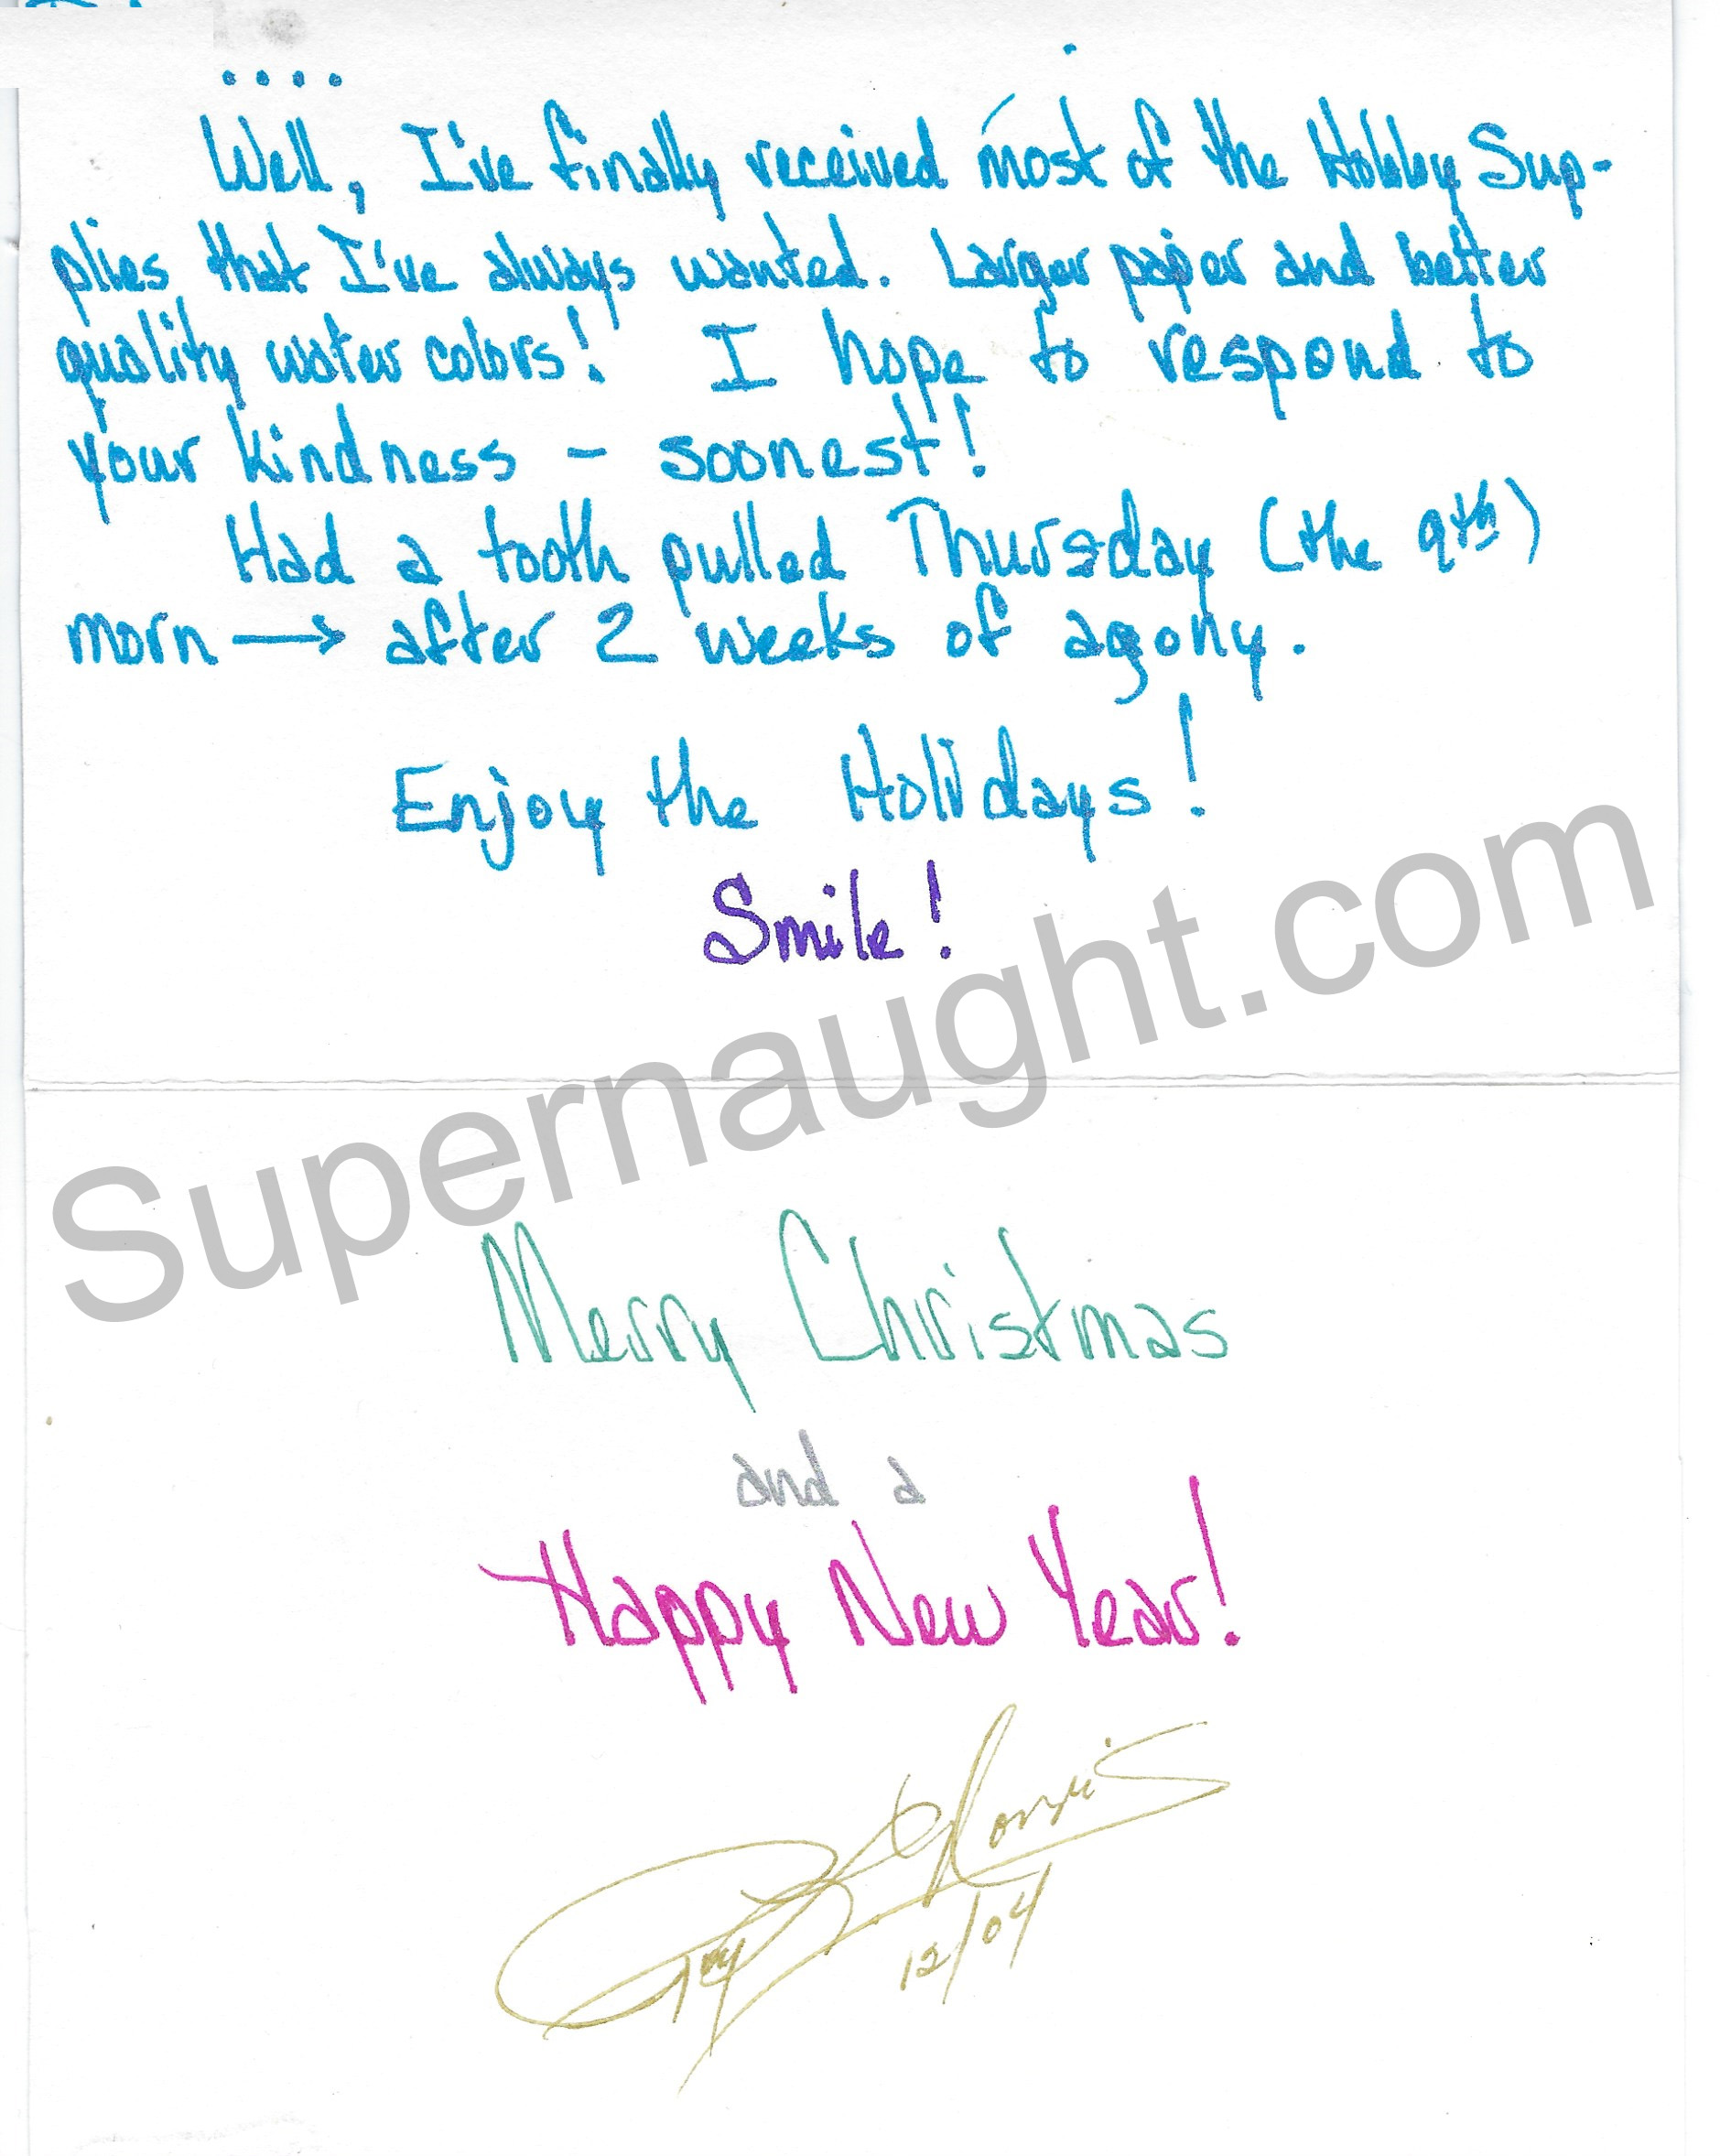 ....
Well, I've finally received most of the Hobby Sup-
plies that I've always wanted. Larger paper and better
quality water colors! I hope to respond to
your kindness - soonest!
Had a tooth pulled Thursday (the 9th)
morn → after 2 weeks of agony.
Enjoy the Holidays!
Smile!
Supernaught.com
Merry Christmas
and a
Happy New Year!
Roy Norris
12/04